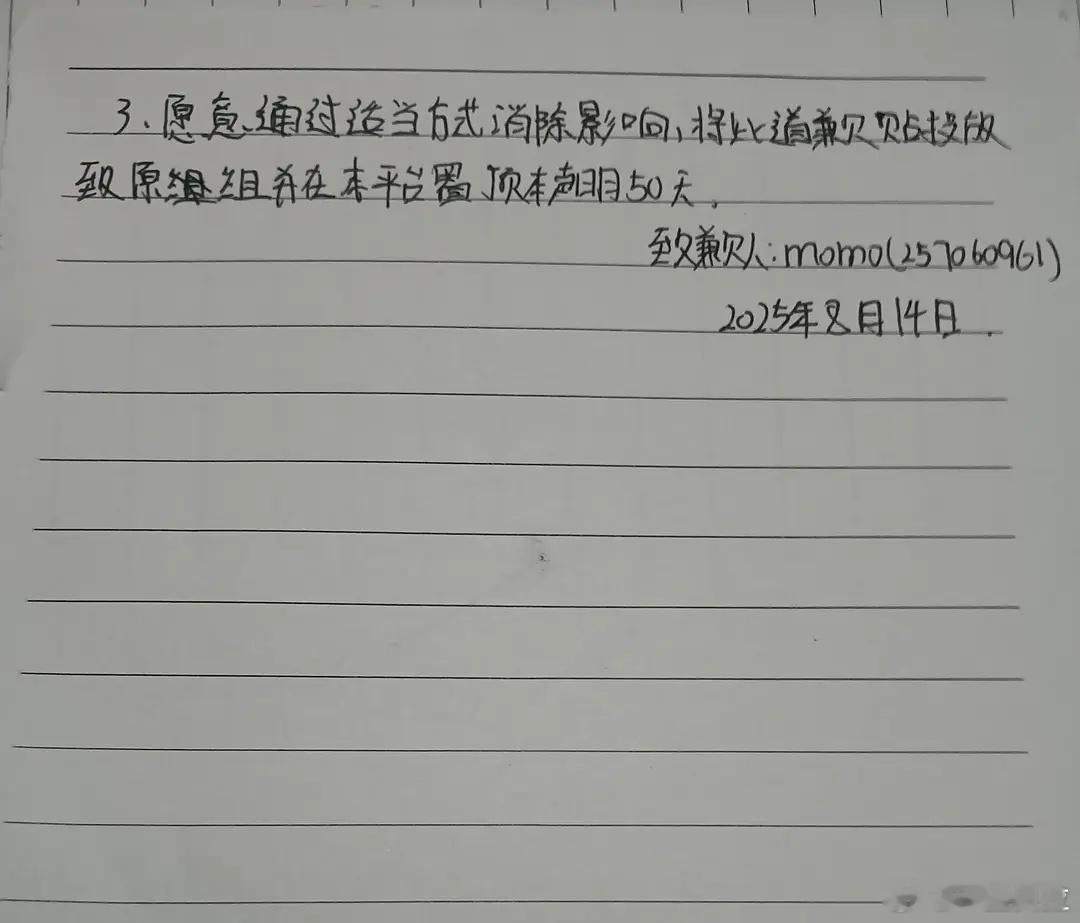 3、愿意通过适当方式消除影响，将此道兼欠贴投放
致原组组并在本平台置顶本声明50天。
致歉人：momo(257060961)
2025年8月14日.